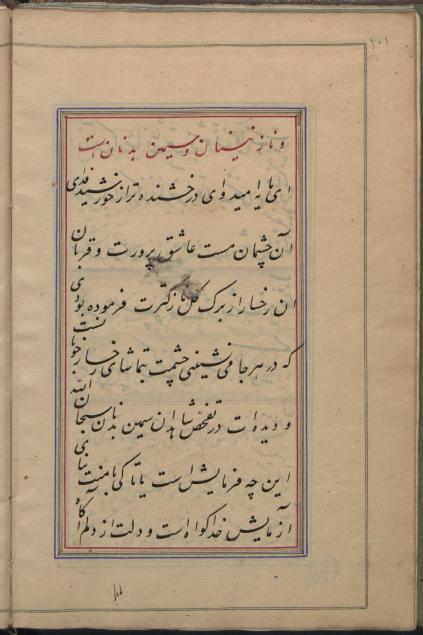 ۱۰۱
و نازنینان و سیمین بدنان است
ای مایه امید و ای درخشنده تر از خورشید فدای
آن چشمان مست عاشق پرورت و قربان
ان رخسار از برک کل نازکترت فرموده بودی
که در هر جا می نشینی چشمت بتماشای رخسار خوبانست
و دیده ات در تفحص شاهدان سیمین بدن سبحان الله
این چه فرمایش است یا تا کی با منت بنای
آزمایش خدا کواه است و دلت از دلم آگاه